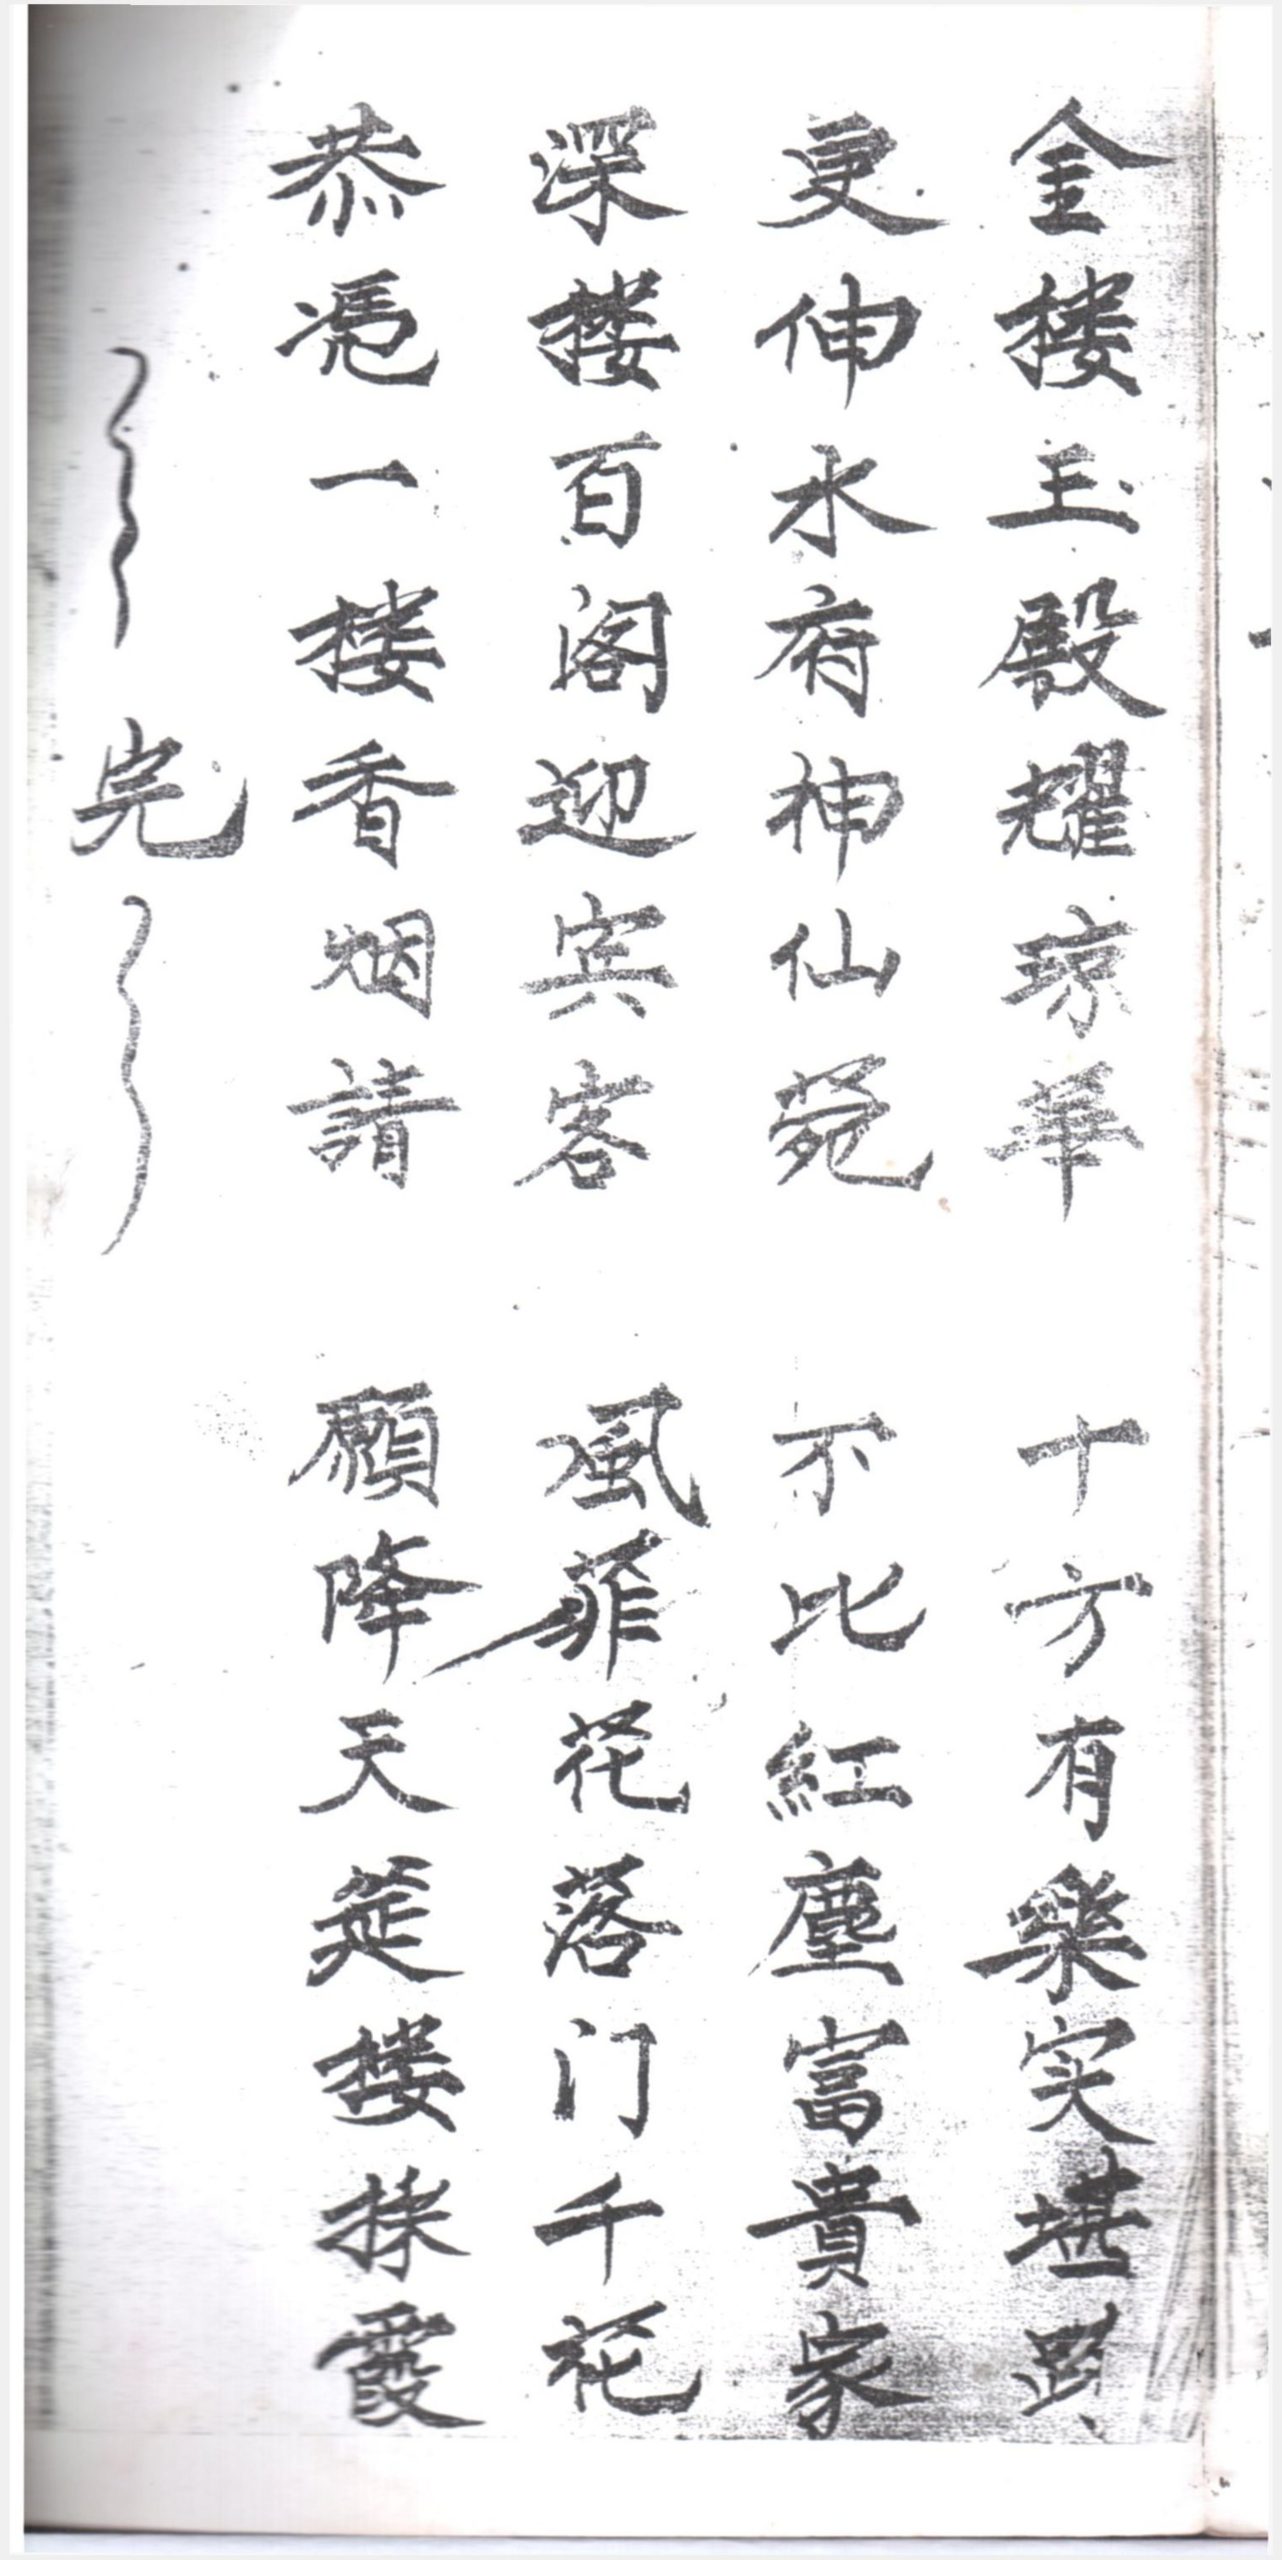 金楼玉殿耀琼華　十方有樂实堪
更伸水府神仙菀　不比紅塵富貴家
深楼百阁迎宾客　風菲花落门千花
恭凭一楼香烟請　願降天筵楼採霞
完